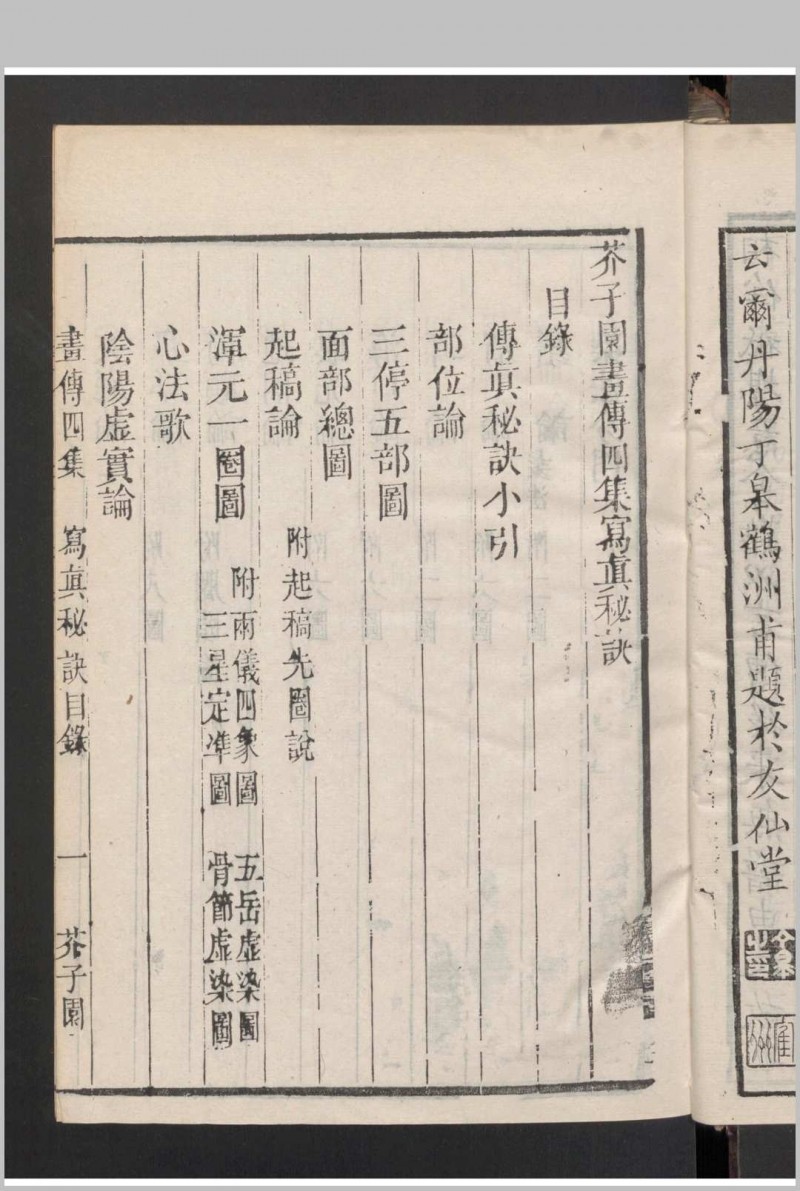 云爾丹陽丁皋鶴洲甫題於友仙堂
芥子園畫傳四集寫真秘訣
目錄
傳真秘訣小引
部位論
三停五部圖
面部總圖
起稿論 附起稿先圈說
渾元一圈圖 附兩儀四象圖 五岳虛染圖
三星定準圖 骨節虛染圖
心法歌
陰陽虛實論
畫傳四集 寫真秘訣目錄 一 芥子園